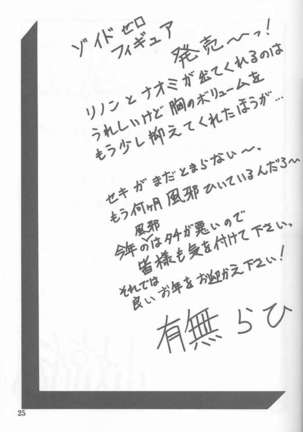 ゾイドゼロ
フィギュア
発売〜っ!
リノンとナオミが出てくれるのは
うれしいけど胸のボリュームを
もう少し抑えてくれたほうが…
セキがまだとまらない〜。
もう何ヶ月風邪ひいているんだろ〜
風邪
今年のはタチが悪いので
皆様も気を付けて下さい。
それでは
良いお年をお迎え下さい!
有無らひ
25